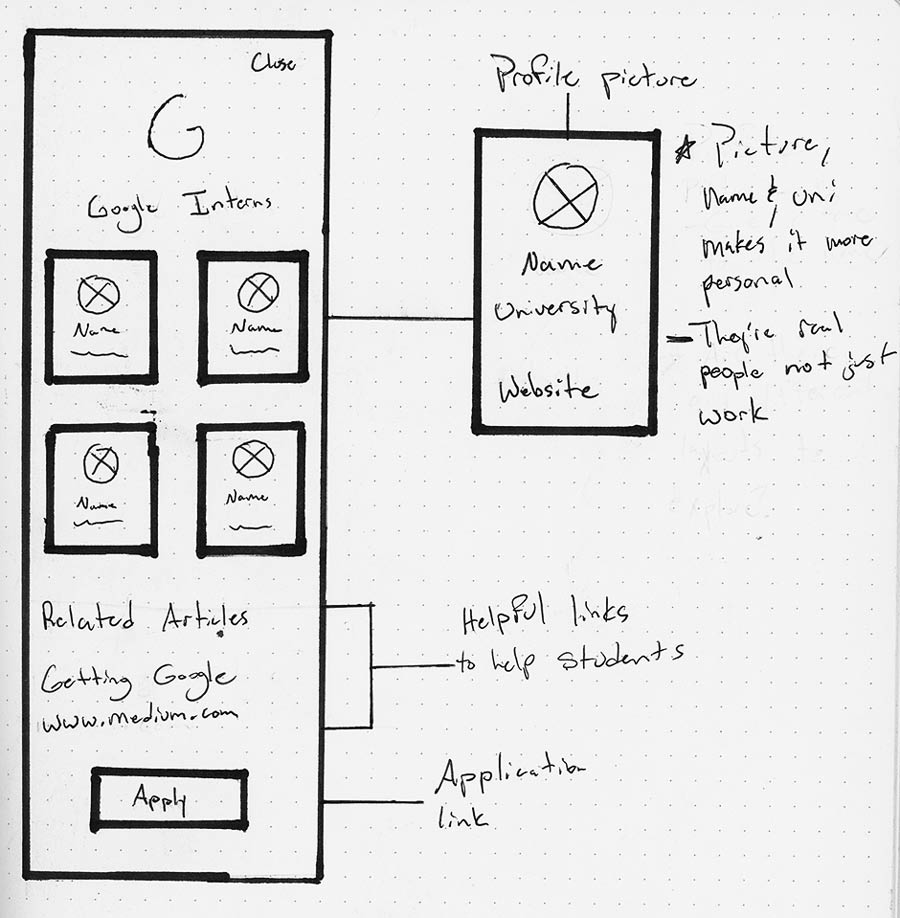 Close
G
Google Interns
Name
Name
Name
Name
Related Articles
Getting Google
www.medium.com
Apply
Profile picture
Name
University
Website
* Picture,
Name & uni
makes it more
personal
- They're real
people not just
work
Helpful links
to help students
Application
link